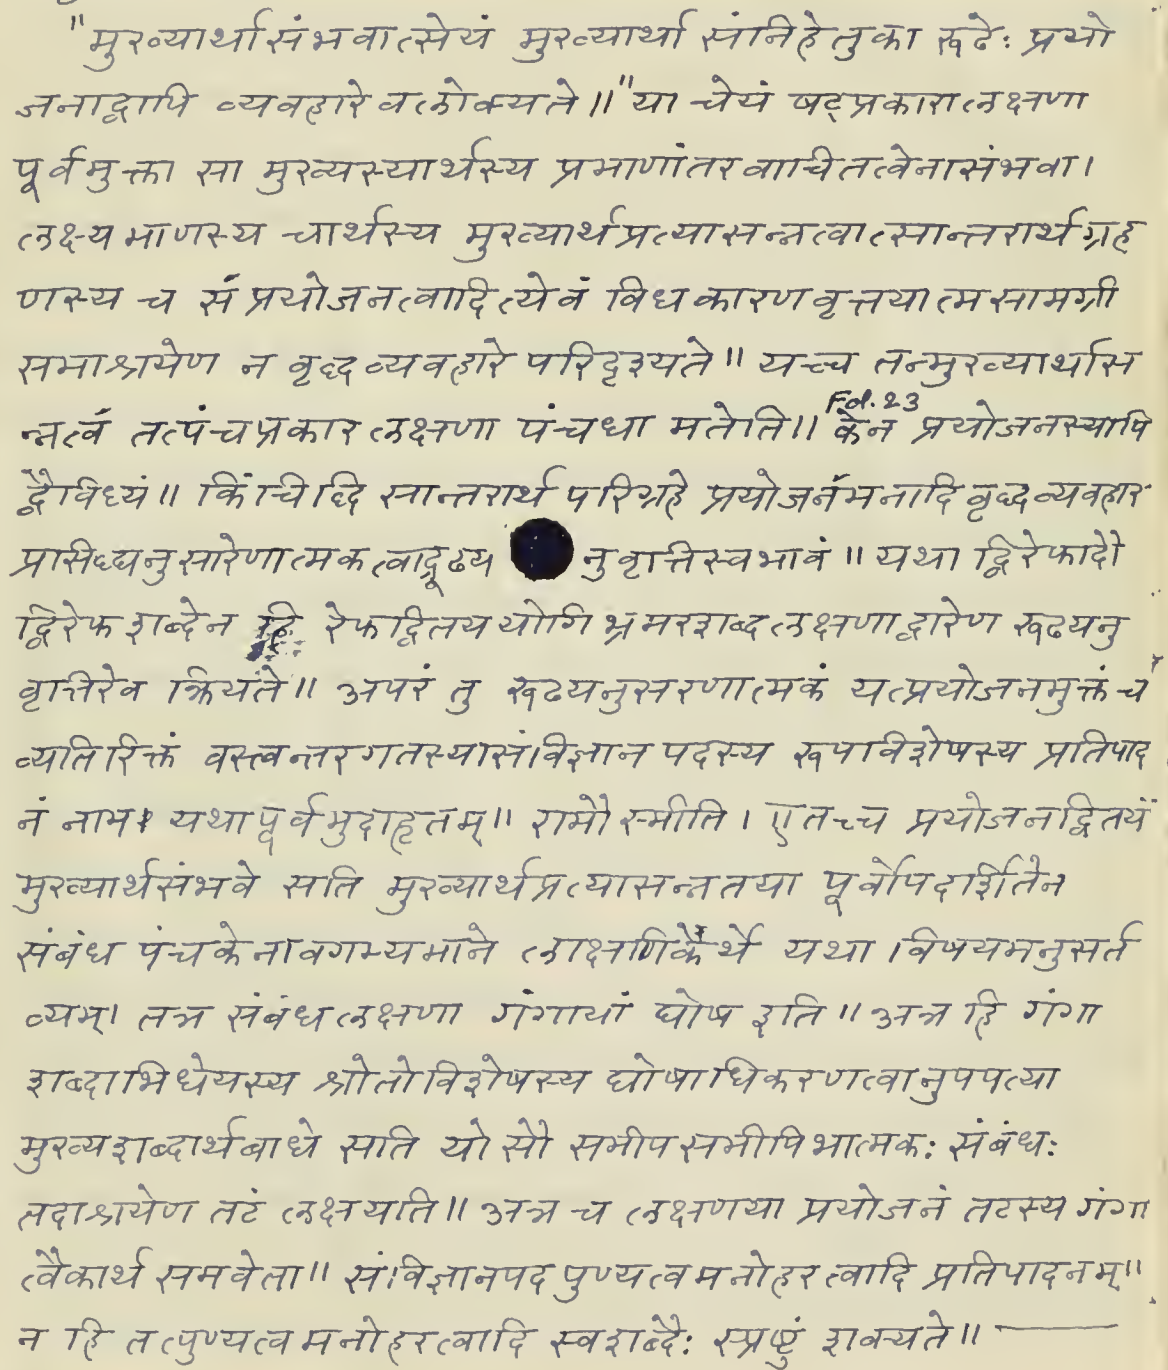 "मुख्यार्थासंभवात्सेयं मुख्यार्था संनिहेतुका रूढेः प्रयो
जनाद्वापि व्यवहारे वलोक्यते॥" या चेयं षट्प्रकारालक्षणा
पूर्वमुक्ता सा मुख्यस्यार्थस्य प्रमाणांतरवाचितत्वेनासंभवा।
लक्ष्यमाणस्य चार्थस्य मुख्यार्थप्रत्यासन्नत्वात्सान्तरार्थग्रह
णस्य च संप्रयोजनत्वादित्येवंविधकारणवृत्तयात्मसामग्री
समाश्रायेण न वृद्धव्यवहारे परिदृश्यते॥ यच्च तन्मुख्यार्थास
न्नत्वं तत्पंचप्रकारलक्षणा पंचधा मतेति॥ केन प्रयोजनस्यापि
Fol. 23
द्वैविध्यं॥ किंचिद्धि सान्तरार्थपरिग्रहे प्रयोजनंमनादिवृद्धव्यवहार
प्रासिध्द्यनुसारेणात्मकत्वाद्रूढय नुवृत्तिस्वभावं॥ यथा द्विरेफादौ
द्विरेफशब्देन हि रेफद्वितययोगिभ्रमरशब्दलक्षणाद्वारेण रूढयनु
वृत्तिरेव क्रियते॥ अपरं तु रूढयनुसरणात्मकं यत्प्रयोजनमुक्तं च
व्यतिरिक्तं वस्त्वन्तरगतस्यासंविज्ञानपदस्य रूपविशेषस्य प्रतिपाद
नं नाम। यथा पूर्वमुदाहृतम्॥ रामौ स्मीति। एतच्च प्रयोजनद्वितयं
मुख्यार्थसंभवे सति मुख्यार्थप्रत्यासन्नतया पूर्वोपदर्शितेन
संबंधपंचकेनावगम्यमाने लाक्षणिकेर्थे यथा।विषयमनुसर्त
व्यम्। तत्र संबंधलक्षणा गंगायां घोष इति॥ अत्र हि गंगा
शब्दाभिधेयस्य श्रोतोविशेषस्य घोषाधिकरणत्वानुपपत्या
मुख्यशब्दार्थबाधे सति यो सौ समीपसमीपिभात्मकः संबंधः
तदाश्रायेण तटं लक्षयति॥ अत्र च लक्षणया प्रयोजनं तटस्य गंगा
त्वैकार्थसमवेता॥ सं।विज्ञानपदपुण्यत्वमनोहरत्वादि प्रतिपादनम्॥
न हि तत्पुण्यत्वमनोहरत्वादि स्वशब्दैः स्प्रष्टुं शक्यते॥